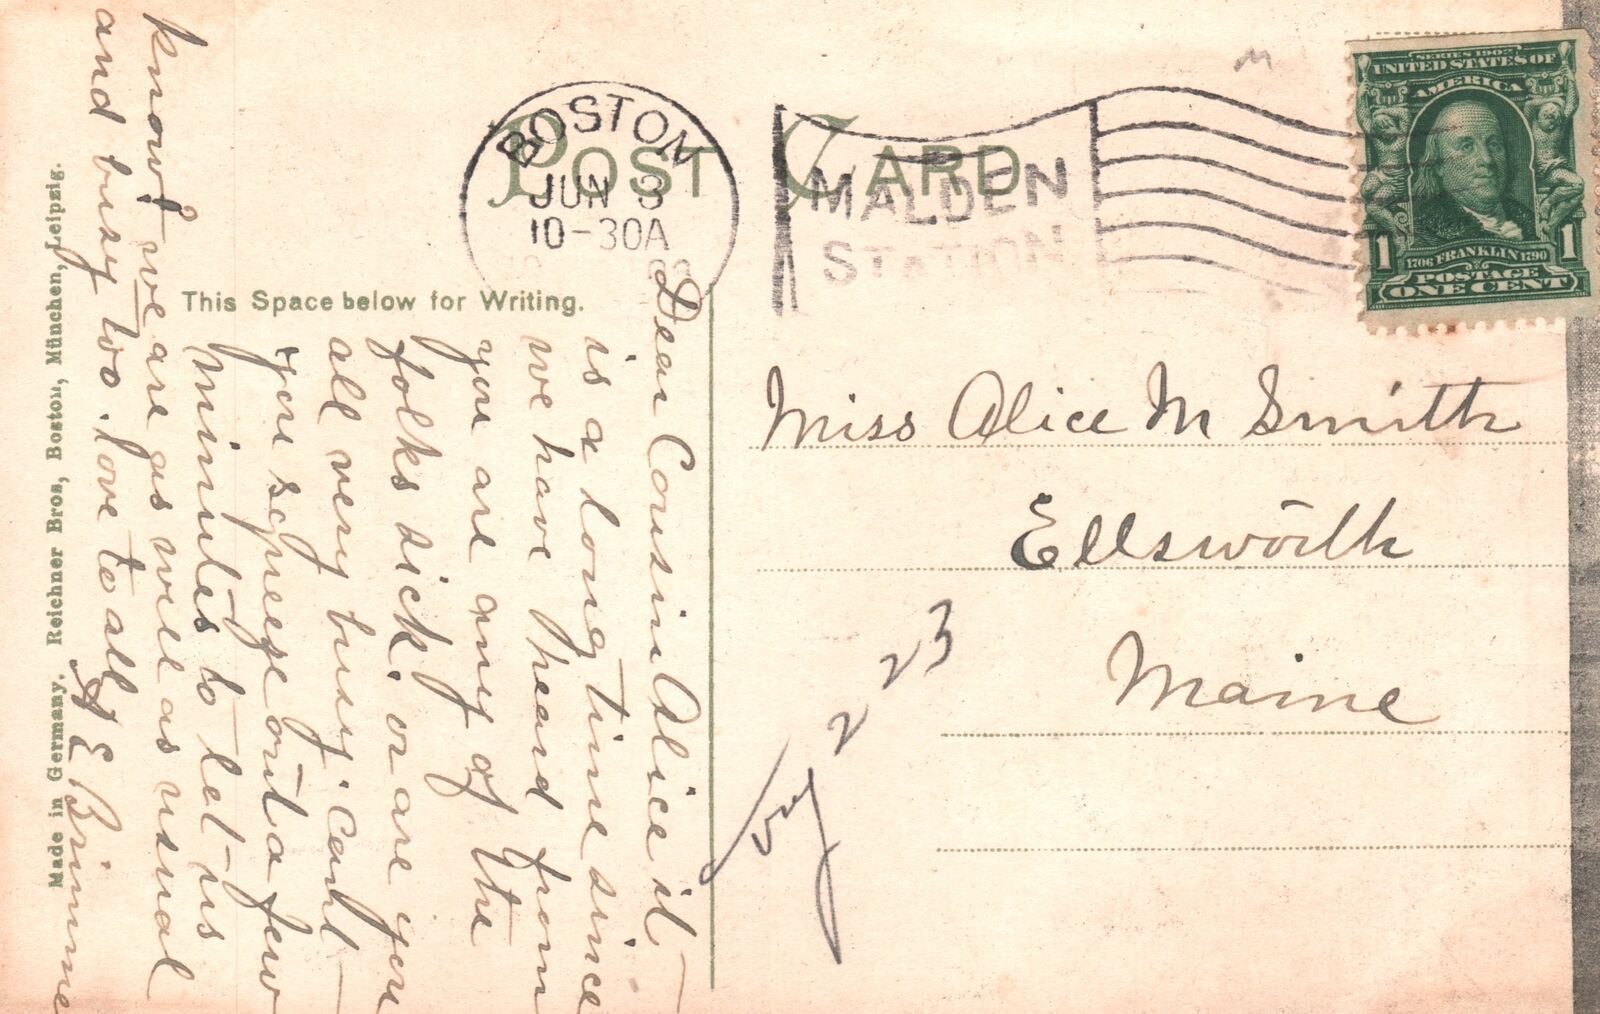 POST CARD
BOSTON
JUN 3
10-30A
MALDEN
STATION
SERIES 1902
UNITED STATES OF
AMERICA
1706 FRANKLIN 1790
POSTAGE
1 ONE CENT 1
This Space below for Writing.
Dear Cousin Alice it
is a long time since
we have heard from
you are any of the
folks sick. or are you
all very busy. Cant
you sqneeze out a few
minutes to let us
know? we are as well as usual
and busy too. love to all
A E Brimme
Miss Alice M Smith
Ellsworth
Maine
223
Made in Germany. Reichner Bros, Boston, München, Leipzig.